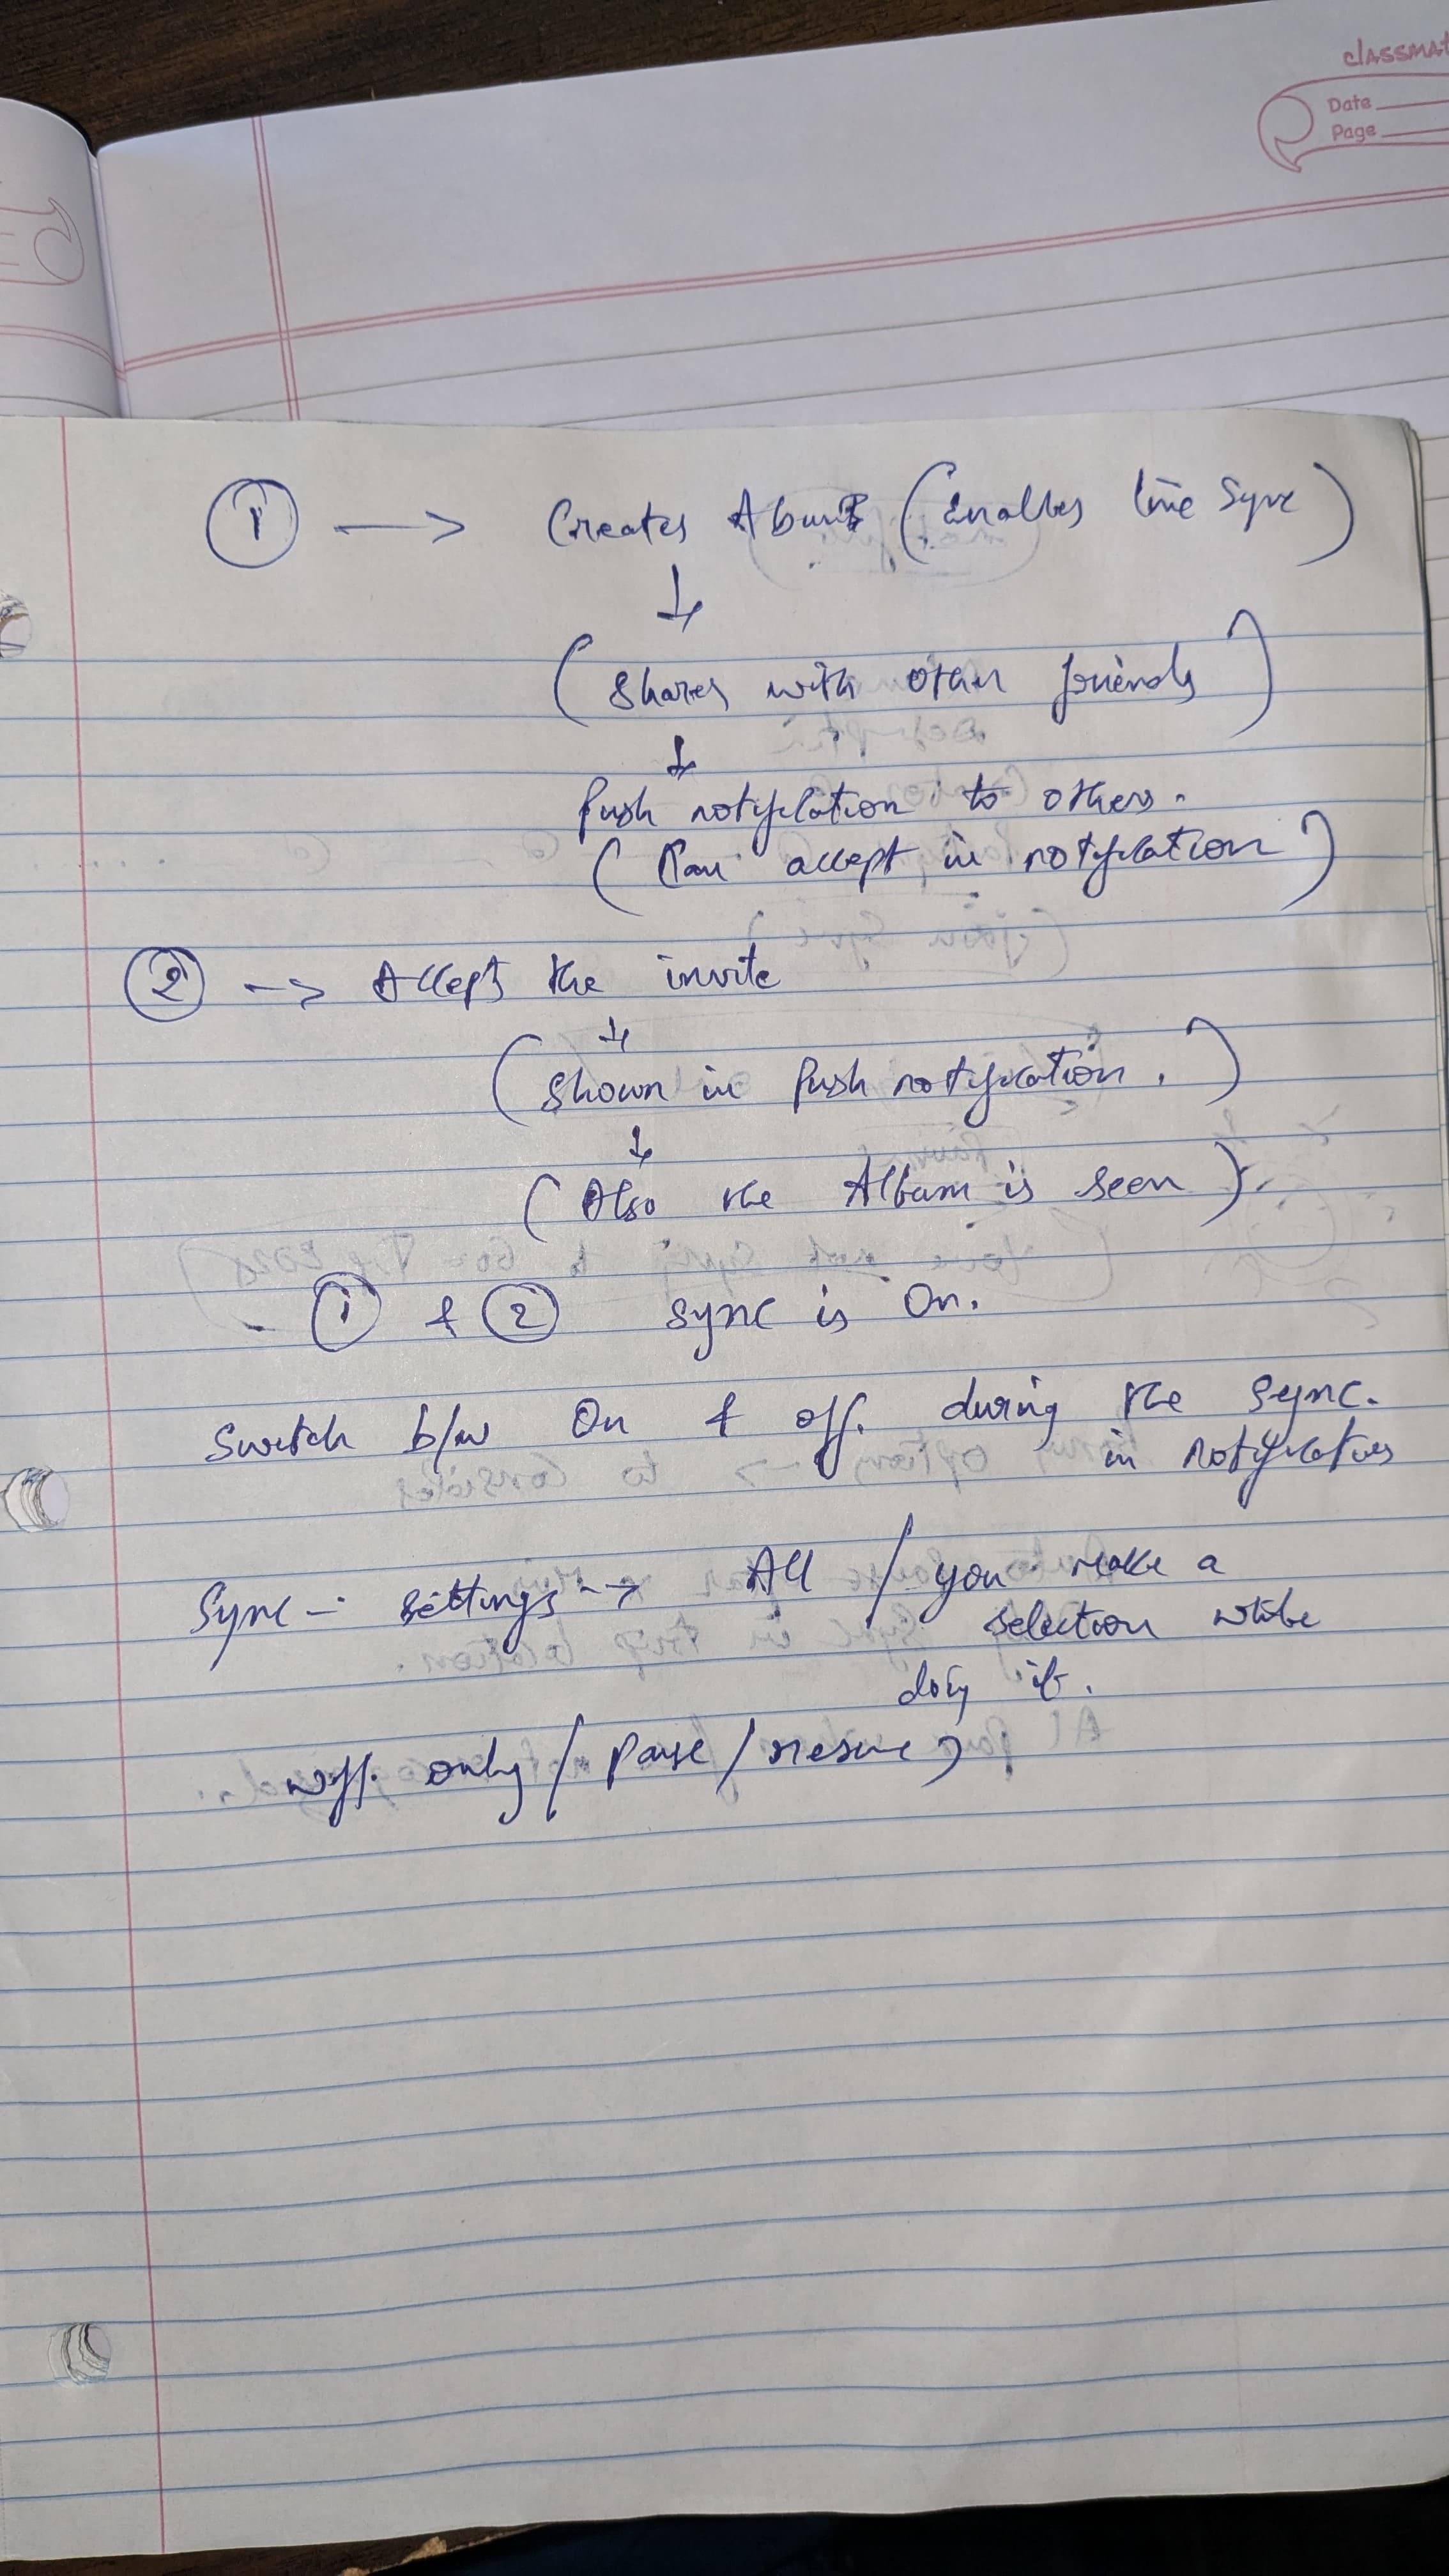 classmat
Date
Page
① → Creates Album (Enables live Sync)
↓
(Shares with other friends)
↓
Push notification to others.
(Can accept in notification)
② -> Accepts the invite
↓
(Shown in Push notification.)
↓
(Also the Album is seen).
- ① & ② sync is On.
Switch b/w On & off. during the sync.
in notifications
Sync - settings -> All / you make a
selection while
doing it.
only / Pause / resume